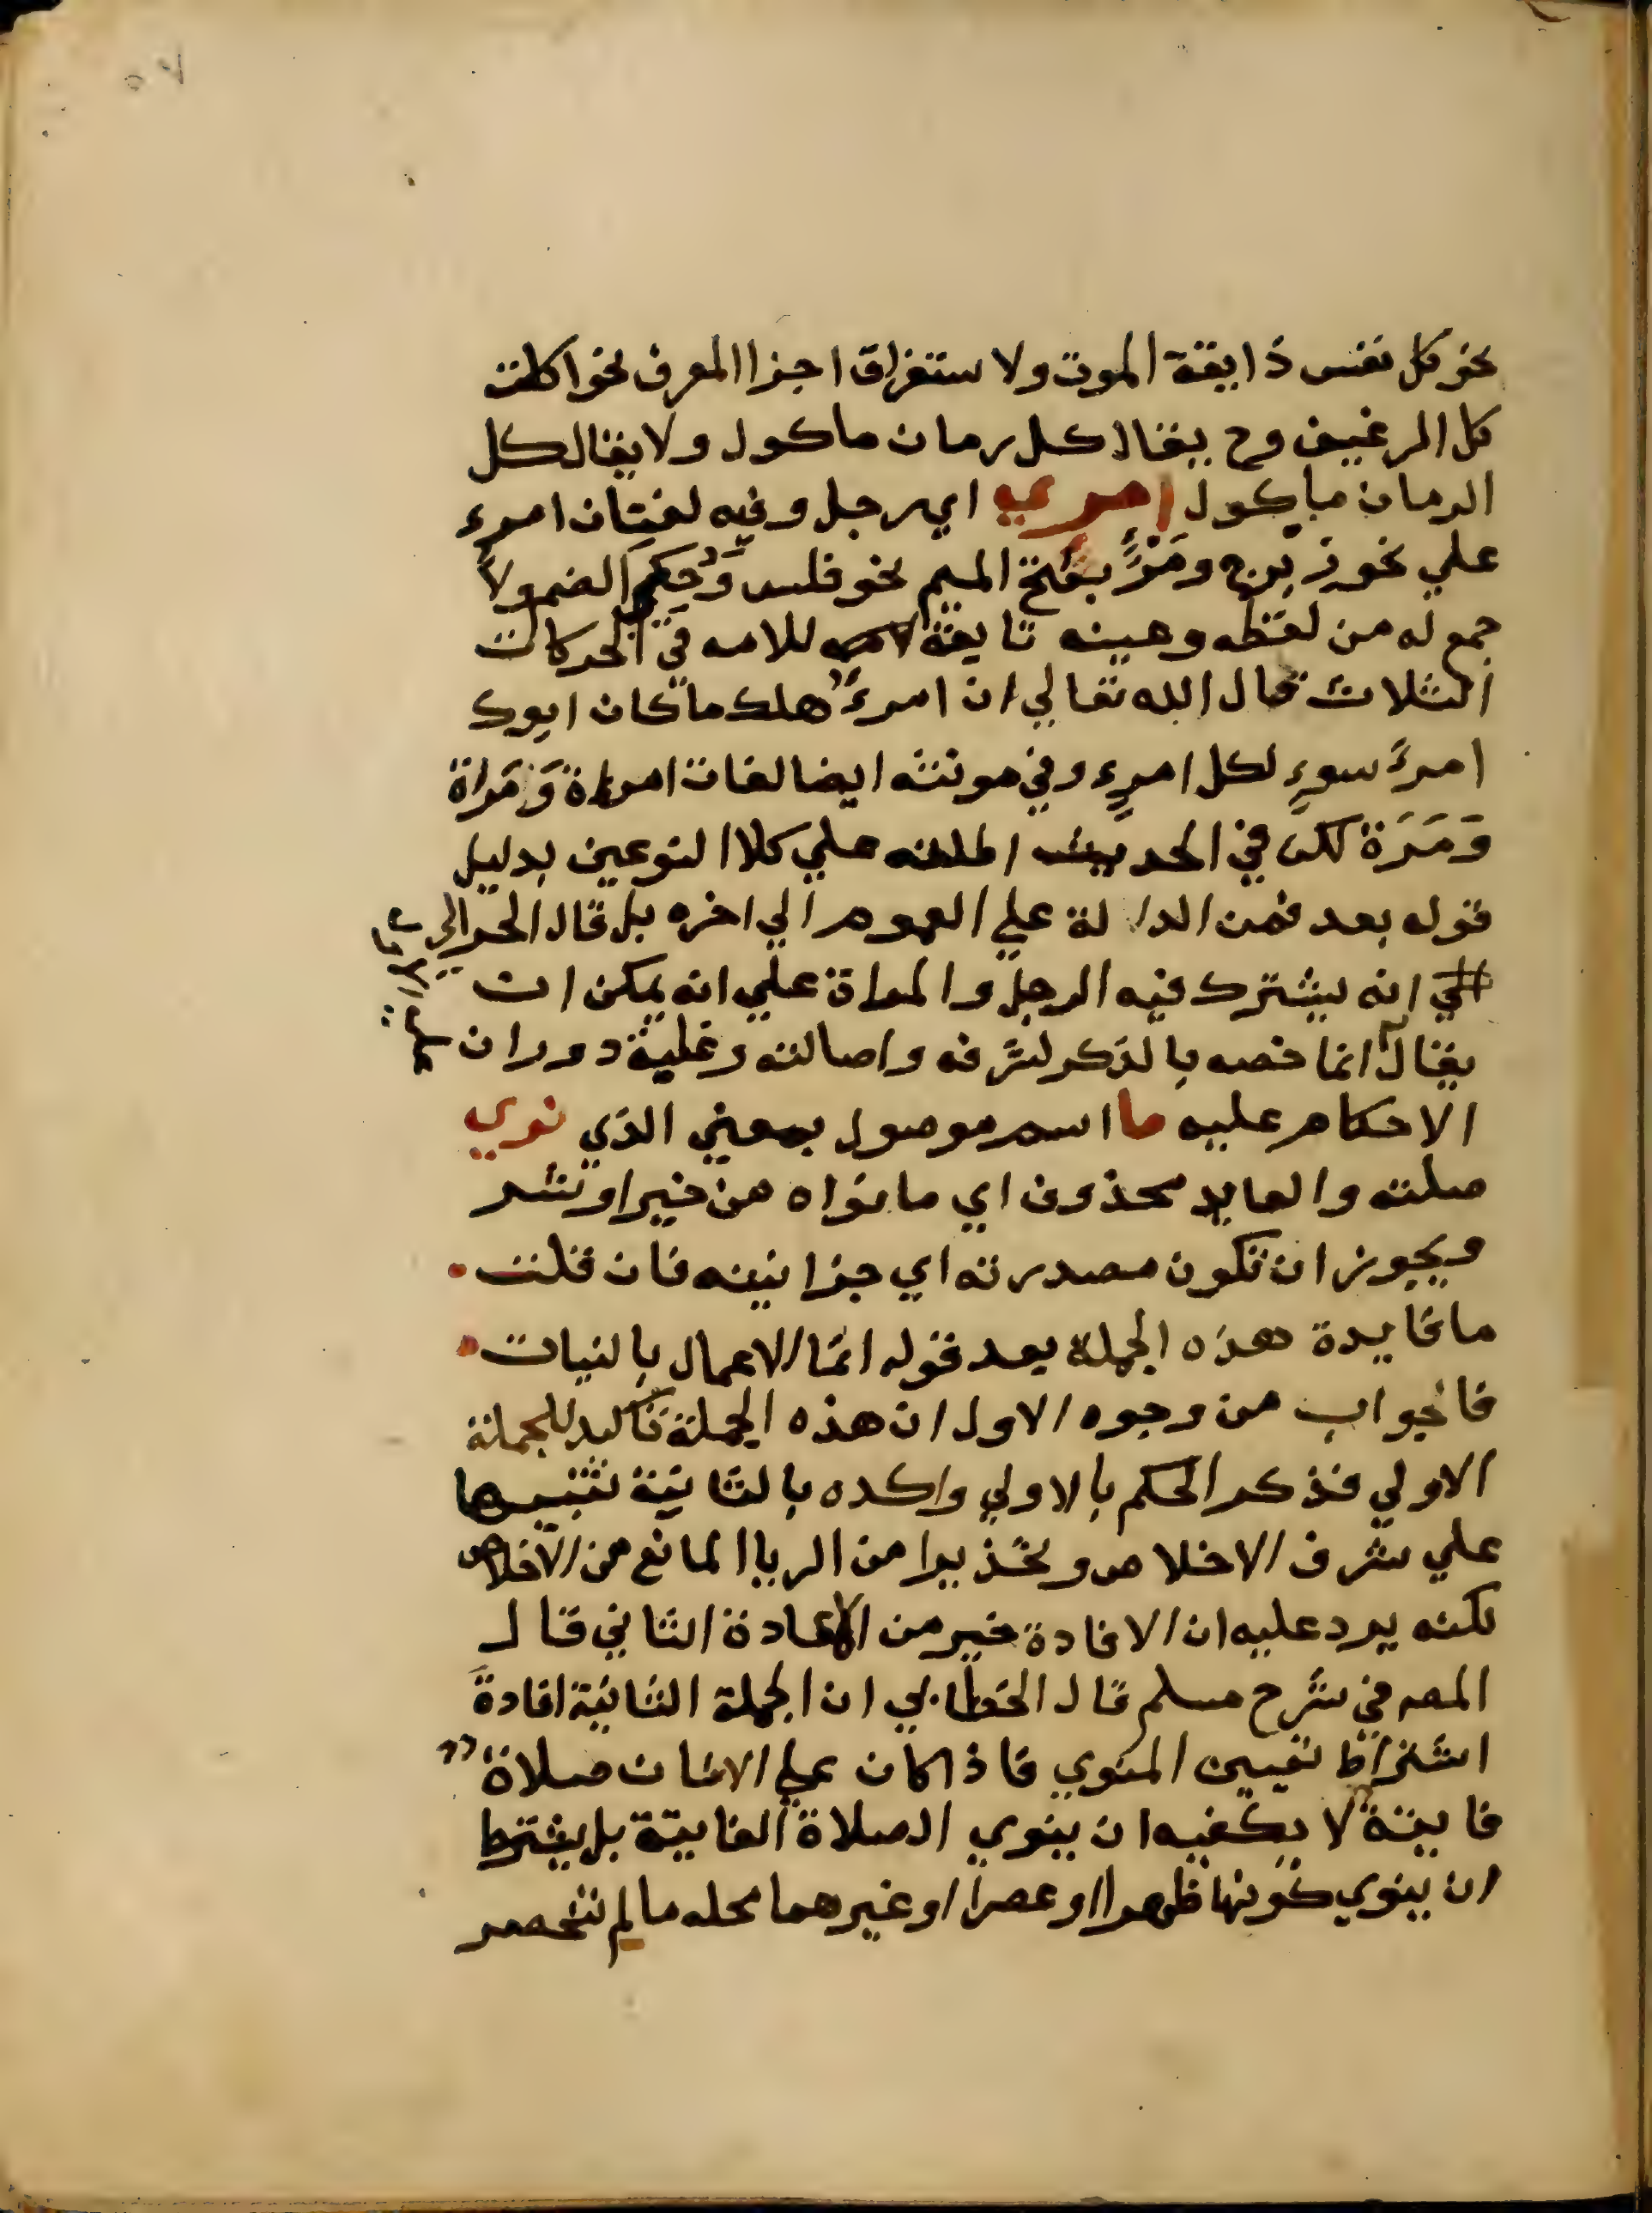 نحو كل نفس ذايقة الموت ولاستغراق اجزا المعرف نحو اكلت
كل الرغيف وح يقال كل رمان ماكول ولا يقال كل
الرمان ماكول امري اي رجل وفيه لغتان امرء
علي نحو زبرج ومَرْءٌ بفتح الميم نحو فلس وحكي الضم ولا
جمع له من لفظه وعينه تابعة للامه في الحركات
الثلاث قال الله تعالي ان امرءٌ هلك ما كان ابوك
امرءَ سوءٍ لكل امرءٍ وفي مونثه ايضا لغات امراة وَمَراة
وَمَرَة لكن في الحديث اطلقه علي كلا النوعين بدليل
قوله بعد فمن الدالة علي العموم الي اخره بل قال الحرالي
انه يشترك فيه الرجل والمراة علي انه يمكن ان
يقال انما خصه بالذكر لشرفه واصالته وغلبة دوران
الاحكام عليه ما اسم موصول بمعني الذي نوي
صلته والعايد محذوف اي ما نواه من خير او شر
ويجوز ان تكون مصدرية اي جزا نيته فان قلت
ما فايدة هذه الجملة بعد قوله انما الاعمال بالنيات
فالجواب من وجوه الاول ان هذه الجملة تاكيد للجملة
الاولي فذكر الحكم بالاولي واكده بالثانية تنبيها
علي شرف الاخلاص وتحذيرا من الريا المانع من الاخلاص
لكنه يرد عليه ان الافادة خير من الاعادة الثاني قال
المصـ في شرح مسلم قال الخطابي ان الجملة الثانية افادة
اشتراط تعيين المنوي فاذا كان علي الانسان صلاة
فايتة لا يكفيه ان ينوي الصلاة الفايتة بل يشترط
ان ينوي كونها ظهرا او عصرا او غيرهما محله ما لم تنحصر